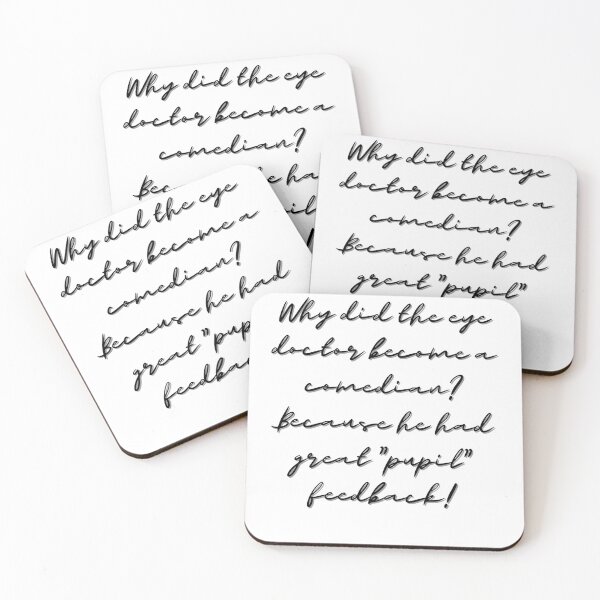 Why did the eye
doctor become a
comedian?
he ha
Why did the eye
doctor become a
comedian?
Because he had
great ”pupil”
Why did the eye
doctor become a
comedian?
Because he had
great ”pup
feedba
Why did the eye
doctor become a
comedian?
Because he had
great ”pupil”
feedback!